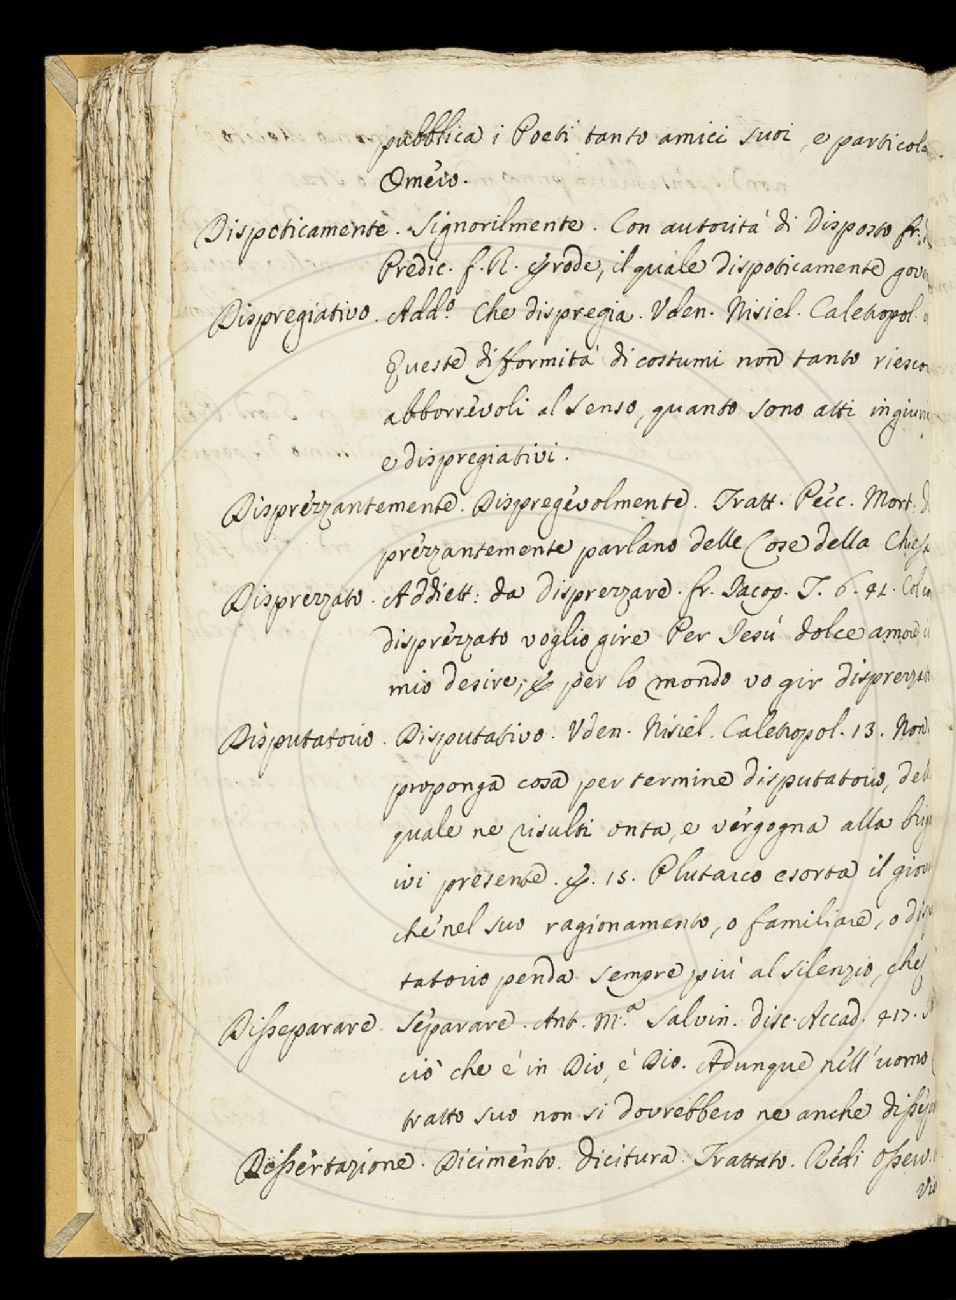 pubblica i Poeti tanto amici suoi, e particola
Omero.
Dispoticamente. Signorilmente. Con autorità di Disposto fr.
Predic. f. R. Erode, il quale dispoticamente gov
Dispregiativo. Add.º Che dispregia. Vden. Nisiel. Caletropol.
Queste difformità di costumi non tanto riesco
abborrevoli al senso, quanto sono atti ingiur
e dispregiativi.
Disprezzantemente. Dispregevolmente. Tratt. Pecc. Mort. d
prezzantemente parlano delle Cose della Chies
Disprezzato. Addiett: da disprezzare. fr. Iacop. T. 6. 41. Col
disprezzato voglio gire Per Iesù dolce amore, il
mio desire; & per lo mondo vo gir disprezzat
Disputatorio. Disputativo. Vden. Nisiel. Caletropol. 13. Non
proponga cosa per termine disputatorio, del
quale ne risulti onta, e vergogna alla brig
ivi presente. &. 15. Plutarco esorta il giov
che nel suo ragionamento, o familiare, o disp
tatorio penda sempre più al silenzio, che
Disseparare. Separare. Ant. M.ª Salvin. disc. Accad. 417.
ciò che è in Dio, è Dio. Adunque nell'uomo
tratto suo non si dovrebbero ne anche dissep
Dissertazione. Dicimento. dicitura. Trattato. Redi Osserv.